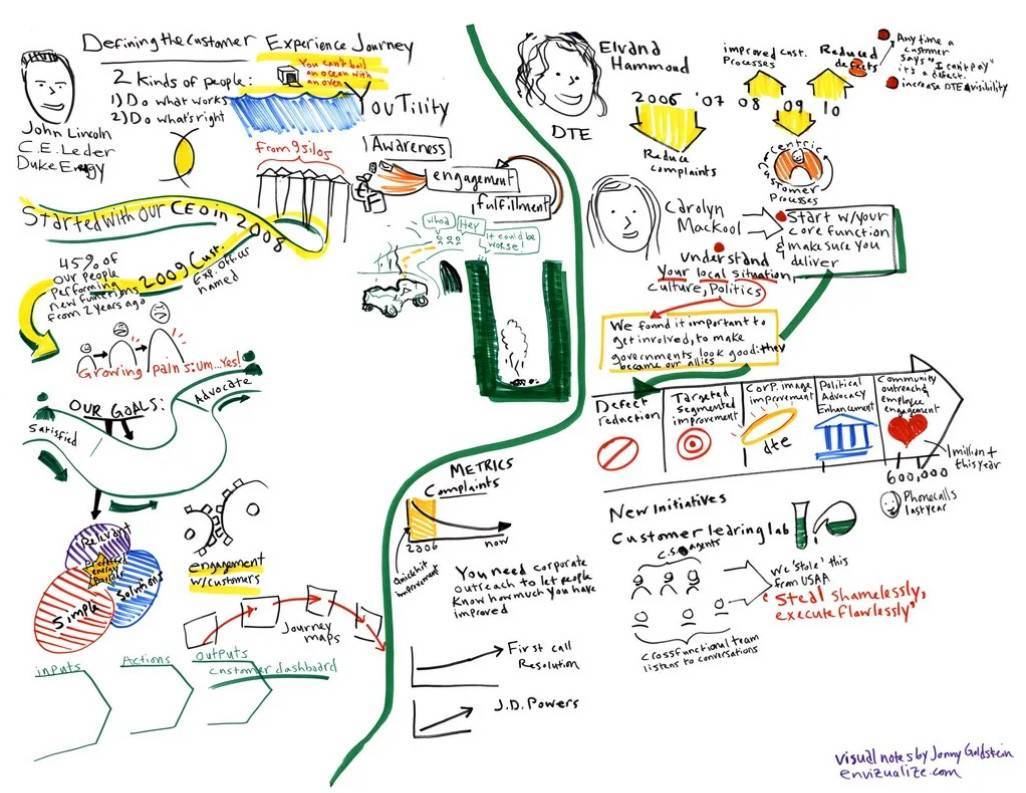 Defining the Customer Experience Journey
John Lincoln
C.E. Leder
Duke Energy
2 Kinds of people:
1) Do what works
2) Do what's right
You can't boil
an ocean with
an oven
YouTility
From 9 silos
Awareness
engagement
fulfillment
Started with our CEO in 2008
2009 Cust.
Exp. officer
named
45% of
our people
performing
new functions
from 2 years ago
whoa
Hey
it could be
worse!
Growing pains: um...Yes!
OUR GOALS:
Satisfied
Advocate
Relevant
Simple
Solutions
engagement
w/customers
Journey
maps
inputs
Actions
outputs
customer dashboard
Elvana
Hammond
DTE
2006 '07 08 09 10
Reduce
complaints
improved cust.
Processes
Reduced
defects
Any time a
customer
says "I can't pay"
it's a defect.
increase DTE visibility
centric
Customer
Processes
Carolyn
Mackool
Start w/your
core function
& make sure you
deliver
understand
Your local situation,
culture, Politics
We found it important to
get involved, to make
governments look good: they
became our allies
Defect
reduction
Targeted
segmented
improvement
Corp. image
improvement
dte
Political
Advocacy
Enhancement
Community
outreach &
employee
engagement
1 million +
this year
600,000
Phone calls
last year
METRICS
Complaints
2006
now
Quick hit
improvement
You need corporate
outreach to let people
know how much you have
improved
First call
Resolution
J.D. Powers
New Initiatives
Customer learing lab
c.s. agents
crossfunctional team
listens to conversations
we 'stole' this
from USAA
"Steal shamelessly,
execute flawlessly"
visual notes by Jonny Goldstein
envizualize.com